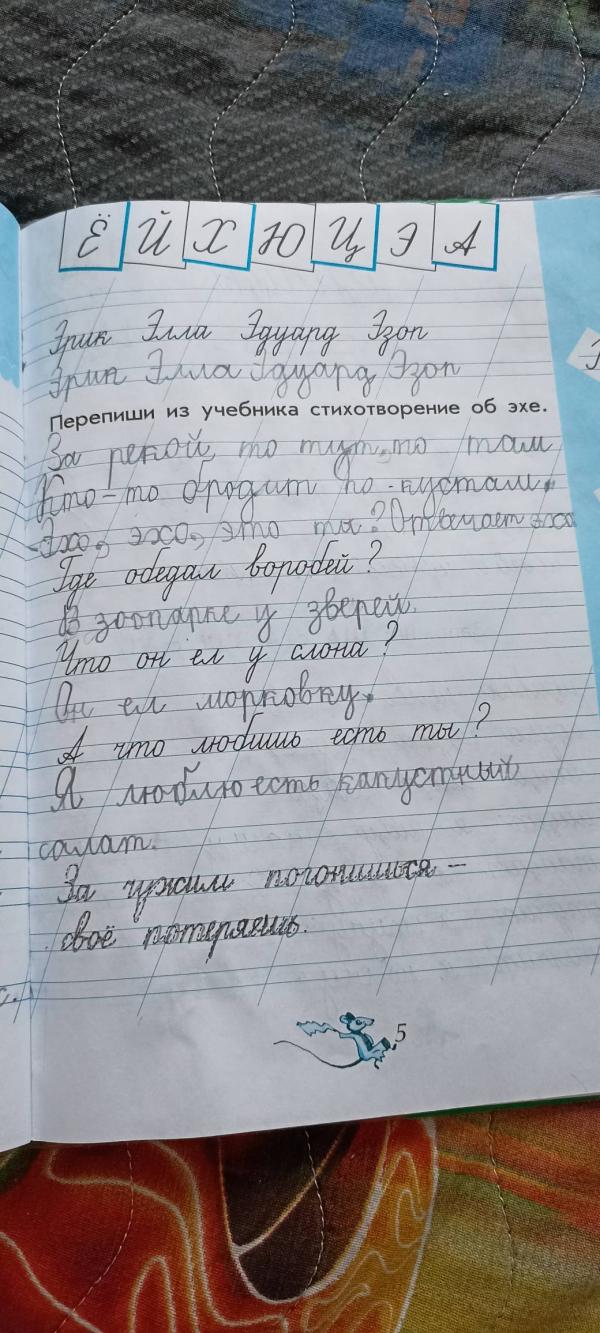 Ё Й Х Ю Ц Э А
Эрик Элла Эдуард Эзоп
Эрик Элла Эдуард Эзоп
Перепиши из учебника стихотворение об эхе.
За рекой, то тут, то там
Кто-то бродит по кустам.
-Эхо, эхо, это ты? Отвечает эхо
Где обедал воробей?
В зоопарке у зверей.
Что он ел у слона?
Он ел морковку.
А что любишь есть ты?
Я люблю есть капустных
салат.
За чужим погонишься –
своё потеряешь.
5